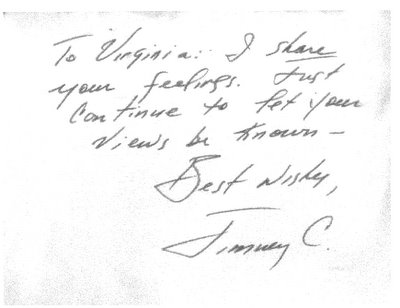 To Virginia: I share
your feelings. Just
continue to let your
views be known –
Best wishes,
Jimmy C.